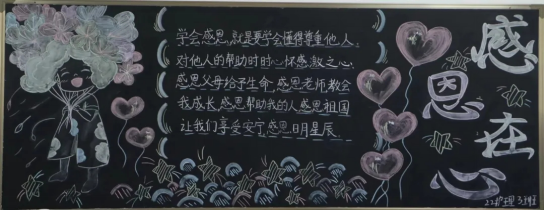 学会感恩，就是要学会懂得尊重他人，
对他人的帮助时时心怀感激之心，
感恩父母给予生命，感恩老师教会
我成长，感恩帮助我的人感恩祖国
让我们享受安宁，感恩日明星辰
感恩在心
22护理3班